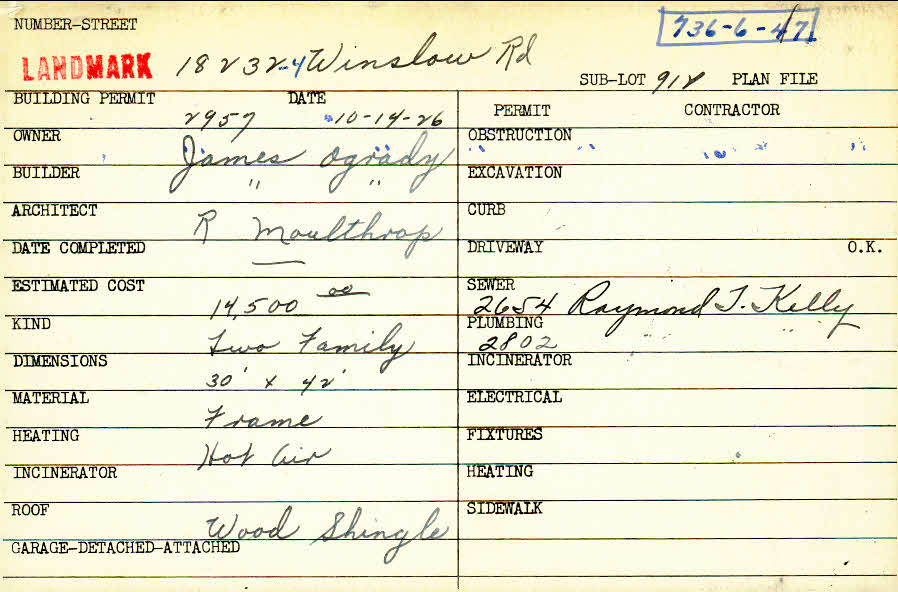 NUMBER-STREET
736-6-47
LANDMARK 18232-4 Winslow Rd
SUB-LOT 918 PLAN FILE
BUILDING PERMIT DATE
2957 10-14-26
PERMIT CONTRACTOR
OWNER
James Ogrady
OBSTRUCTION
BUILDER
" "
EXCAVATION
ARCHITECT
R Moulthrop
CURB
DATE COMPLETED
—
DRIVEWAY O.K.
ESTIMATED COST
14,500 00
SEWER
2654 Raymond T. Kelly
KIND
Two Family
PLUMBING
2802 " "
DIMENSIONS
30' x 42'
INCINERATOR
MATERIAL
Frame
ELECTRICAL
HEATING
Hot Air
FIXTURES
INCINERATOR
HEATING
ROOF
Wood Shingle
SIDEWALK
GARAGE-DETACHED-ATTACHED